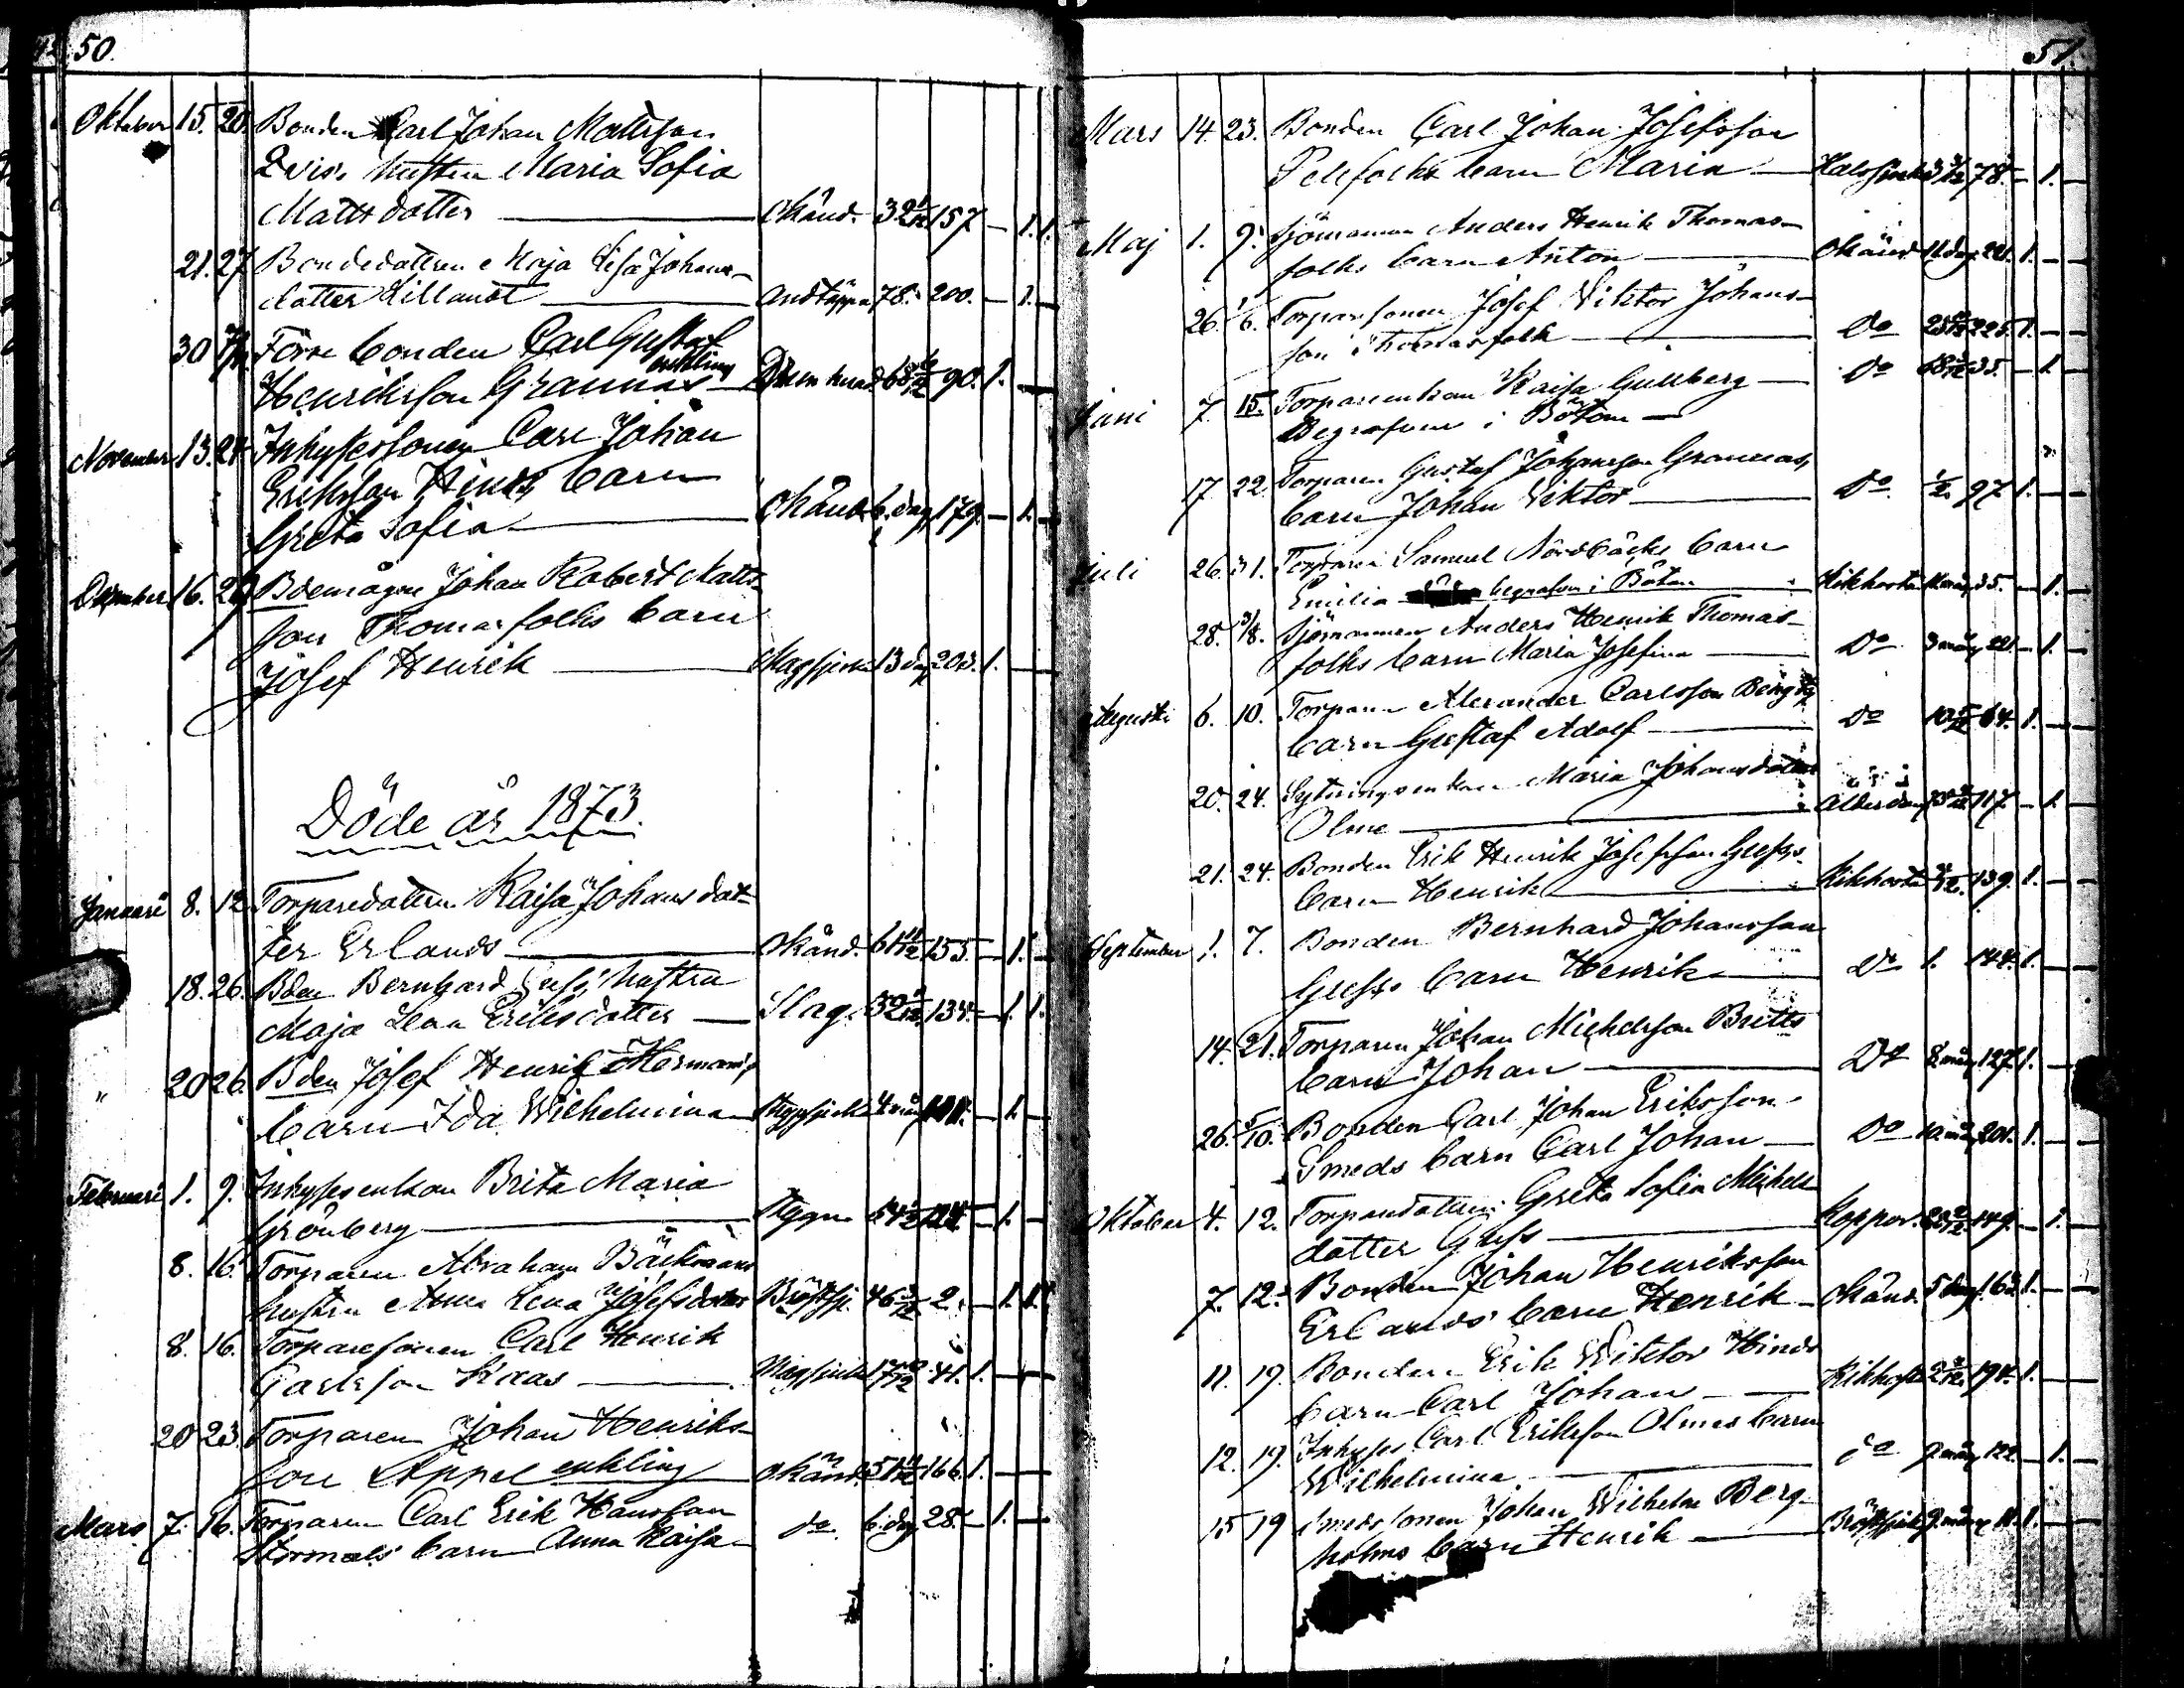 50.
Oktober 15. 20. Bonden Carl Johan Mattsson
Qvis. hustru Maria Sofia
Mattsdotter okänd. 32 157 – 1. 1.
21. 27 Bondedottren Maja Lisa Johans-
dotter Lillandt andtäppa 78. 200. – 1. –
30 Förre bonden Carl Gustaf
Henriksson Grannas enkling 68 90. 1. –
November 13. 24 Inhysessonen Carl Johan
Eriksson Hinds barn
Greta Sofia okänd 6. dag 179. – 1. –
December 16. Bdemågen Johan Robert Matts-
son Thomasfolks barn
Josef Henrik Magsjuka 13 dag 203. 1. –
Döde år 1873.
Januari 8. 12 Torparedottren Kaisa Johansdot-
ter Erlands okänd. 61 155. – 1. –
18. 26. Bden Bernhard Gufs' hustru
Maja Lena Eriksdotter Slag. 32 134. – 1. 1.
" 20 26. Bden Josef Henrik Hermans
barn Ida Wilhelmina 4 mån – 1. –
Februari 1. 9. Inhysesenkan Brita Maria
Grönberg 54 – 1. –
8. 16. Torparen Abraham Bäckmans
hustru Anna Lena Josefsdotter Bröstsj. 46 2. – 1. 1.
8. 16. Torparesonen Carl Henrik
Carlsson Kaas Magsjuka 17 41. 1. –
20 23. Torparen Johan Henriks-
son Appel enkling okänd 51 166. 1. –
Mars 7. 16. Torparen Carl Erik Hansson
Stormals barn Anna Kaisa do 6. dag 28. – 1. –
51.
Mars 14. 23. Bonden Carl Johan Josefsson
Pelefolks barn Maria 78. – 1. –
Maj 1. 9. Sjömannen Anders Henrik Thomas-
folks barn Anton okänd 11 dag 221. 1. –
26. 1/6. Torparsonen Josef Viktor Johans-
son Thomasfolk Do 225. 1. –
Juni 7. 15. Torpareenkan Kaisa Gullberg Do 68 35. – 1.
Begrafven i Bötom
17 22 Torparen Gustaf Johansson Grannas
barn Johan Viktor Do ½ 97 1. –
Juli 26. 31. Torparen Samuel Nordbäcks barn
Emilia begrafven i Bötom Kikhosta 35. – 1. –
28. 3/8. Sjömannen Anders Henrik Thomas-
folks barn Maria Josefina Do 3 mån 221 – 1. –
Augusti 6. 10. Torparen Alexander Carlsson
barn Gustaf Adolf Do 10 64. 1. –
20. 24. Sytningsenkan Maria Johansdotter
Olme Ålderdom 117. – 1.
21. 24. Bonden Erik Henrik Josefsson Gufs.
barn Henrik Kikhosta 139. 1. –
September 1. 7. Bonden Bernhard Johansson
Gufs. barn Henrik Do 1. 144. 1. –
14. 21. Torparen Johan Michelsson Britts
barn Johan Do 8 mån 127. 1. –
26. 5/10. Bonden Carl Johan Eriksson
Smeds barn Carl Johan Do 10 mån 201. 1. –
Oktober 4. 12. Torparedottren Greta Sofia Michels-
dotter Gufs Koppor. 149. – 1.
7. 12. Bonden Johan Henriksson
Erlands barn Henrik okänd. 5 dag. 163 1. –
11. 19. Bonden Erik Wiktor Hinds
barn Carl Johan Kikhosta 2 194. 1. –
12. 19. Inhyses Carl Eriksson Olmes barn
Wilhelmina do 9 mån 122. – 1. –
15 19 Smedssonen Johan Wilhelm Berg-
holms barn Henrik Bröstsjuk 9 mån 11. 1. –